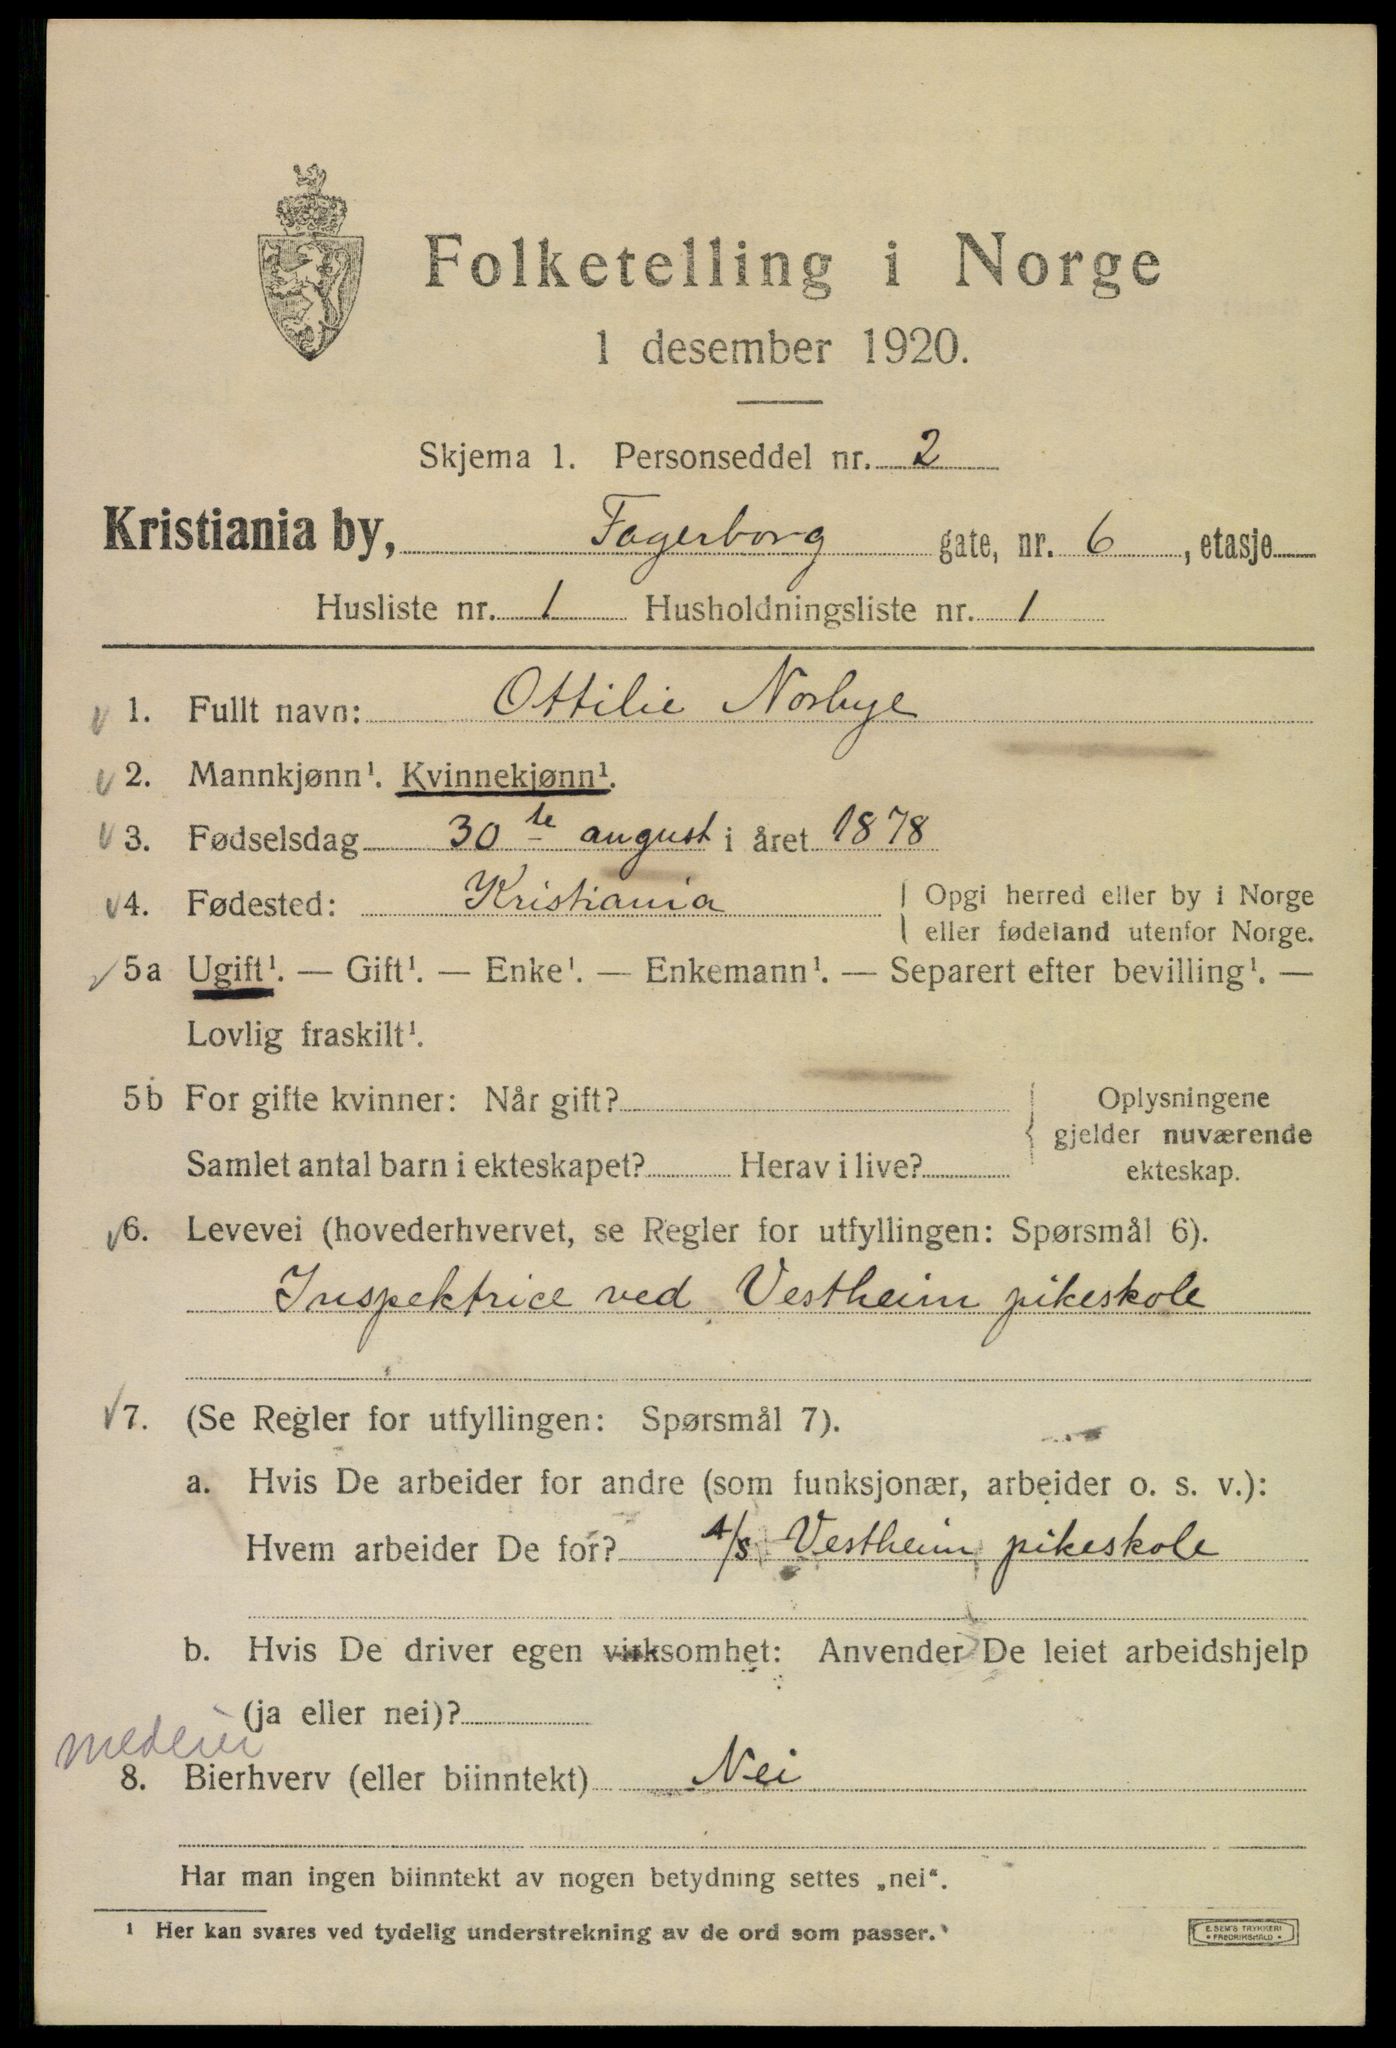 Folketelling i Norge
1 desember 1920.
Skjema 1. Personseddel nr. 2
Kristiania by, Fagerborg gate, nr. 6, etasje
Husliste nr. 1 Husholdningsliste nr. 1
1. Fullt navn: Ottilie Norbye
2. Mannkjønn¹. Kvinnekjønn¹.
3. Fødselsdag 30te august i året 1878
4. Fødested: Kristiania
Opgi herred eller by i Norge
eller fødeland utenfor Norge.
5a Ugift¹. — Gift¹. — Enke¹. — Enkemann¹. — Separert efter bevilling¹. —
Lovlig fraskilt¹.
5b For gifte kvinner: Når gift?
Samlet antal barn i ekteskapet? Herav i live?
Oplysningene
gjelder nuværende
ekteskap.
6. Levevei (hovederhvervet, se Regler for utfyllingen: Spørsmål 6).
Inspektrice ved Vestheim pikeskole
7. (Se Regler for utfyllingen: Spørsmål 7).
a. Hvis De arbeider for andre (som funksjonær, arbeider o. s. v.):
Hvem arbeider De for? A/S Vestheim pikeskole
b. Hvis De driver egen virksomhet: Anvender De leiet arbeidshjelp
(ja eller nei)?
medeier
8. Bierhverv (eller biinntekt) Nei
Har man ingen biinntekt av nogen betydning settes „nei“.
¹ Her kan svares ved tydelig understrekning av de ord som passer.
E. SEM'S TRYKKERI
FREDRIKSHALD